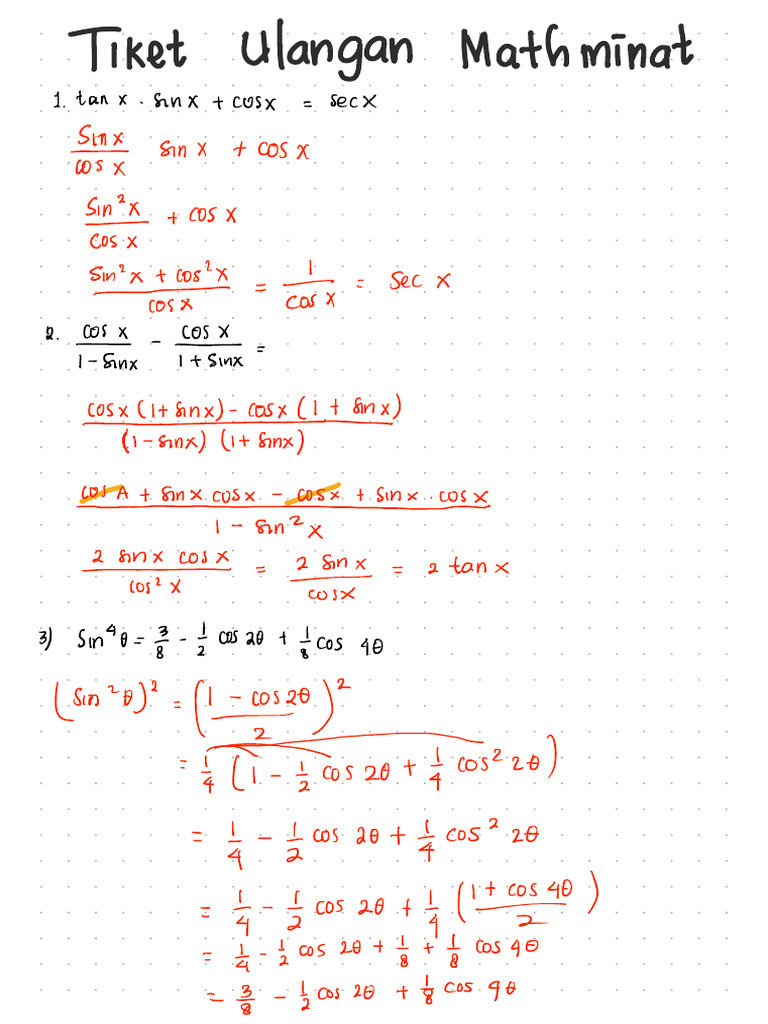 Tiket Ulangan Math minat
1. tan x . sin x + cos x = sec x
sin x / cos x sin x + cos x
sin²x / cos x + cos x
sin²x + cos²x / cos x = 1 / cos x = sec x
2. cos x / 1 - sin x - cos x / 1 + sin x =
cos x (1 + sin x) - cos x (1 + sin x) / (1 - sin x) (1 + sin x)
cos A + sin x . cos x - cos x + sin x . cos x / 1 - sin² x
2 sin x cos x / cos² x = 2 sin x / cos x = 2 tan x
3) Sin⁴θ = 3/8 - 1/2 cos 2θ + 1/8 cos 4θ
(sin²θ)² = (1 - cos 2θ / 2)²
= 1/4 (1 - 1/2 cos 2θ + 1/4 cos² 2θ)
= 1/4 - 1/2 cos 2θ + 1/4 cos² 2θ
= 1/4 - 1/2 cos 2θ + 1/4 (1 + cos 4θ / 2)
= 1/4 - 1/2 cos 2θ + 1/8 + 1/8 cos 4θ
= 3/8 - 1/2 cos 2θ + 1/8 cos 4θ